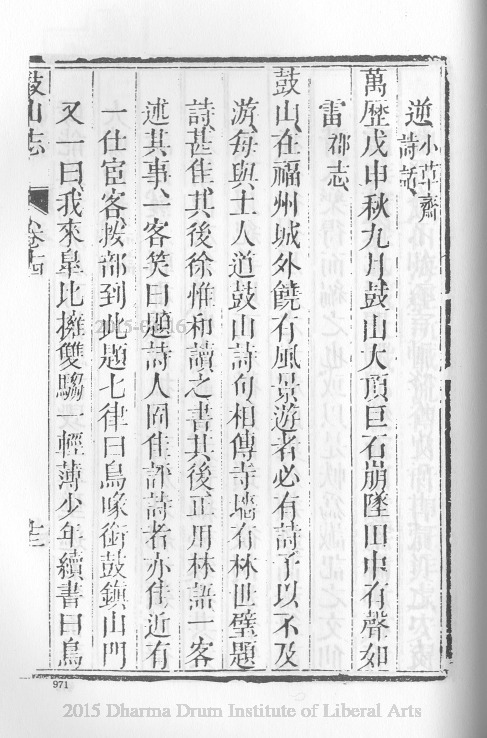 逆小草齋詩話
萬歷戊申秋九月鼓山大頂巨石崩墜田中有聲如
雷郡志
鼓山在福州城外饒有風景遊者必有詩予以不及
游每與土人道鼓山詩句相傳寺墻有林世璧題
詩甚佳其後徐惟和讀之書其後正用林語一客
述其事一客笑曰題詩人固佳評詩者亦佳近有
一仕宦客按部到此題七律曰鳥喙銜鼓鎮山門
又一曰我來皐比擁雙騶一輕薄少年續書曰鳥
鼓山志
卷十四
971
2015 Dharma Drum Institute of Liberal Arts